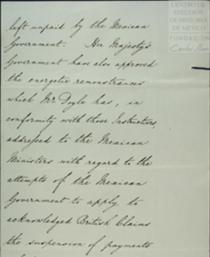 left unpaid by the Mexican
Government. Her Majesty's
Government have also approved
the energetic remonstrances
which Mr Doyle has, in
conformity with those Instructions,
addressed to the Mexican
Ministers with regard to the
attempts of the Mexican
Government to apply to
acknowledged British Claims
the suspension of payments
CENTRO DE
ESTUDIOS
DE HISTORIA
DE MEXICO
FUNDACIÓN
Carlos